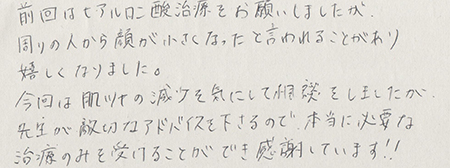 前回はヒアルロン酸治療をお願いしましたが、
周りの人から顔が小さくなったと言われることがあり
嬉しくなりました。
今回は肌ツヤの減少を気にして相談をしましたが
先生が適切なアドバイスを下さるので、本当に必要な
治療のみを受けることができ感謝しています!!